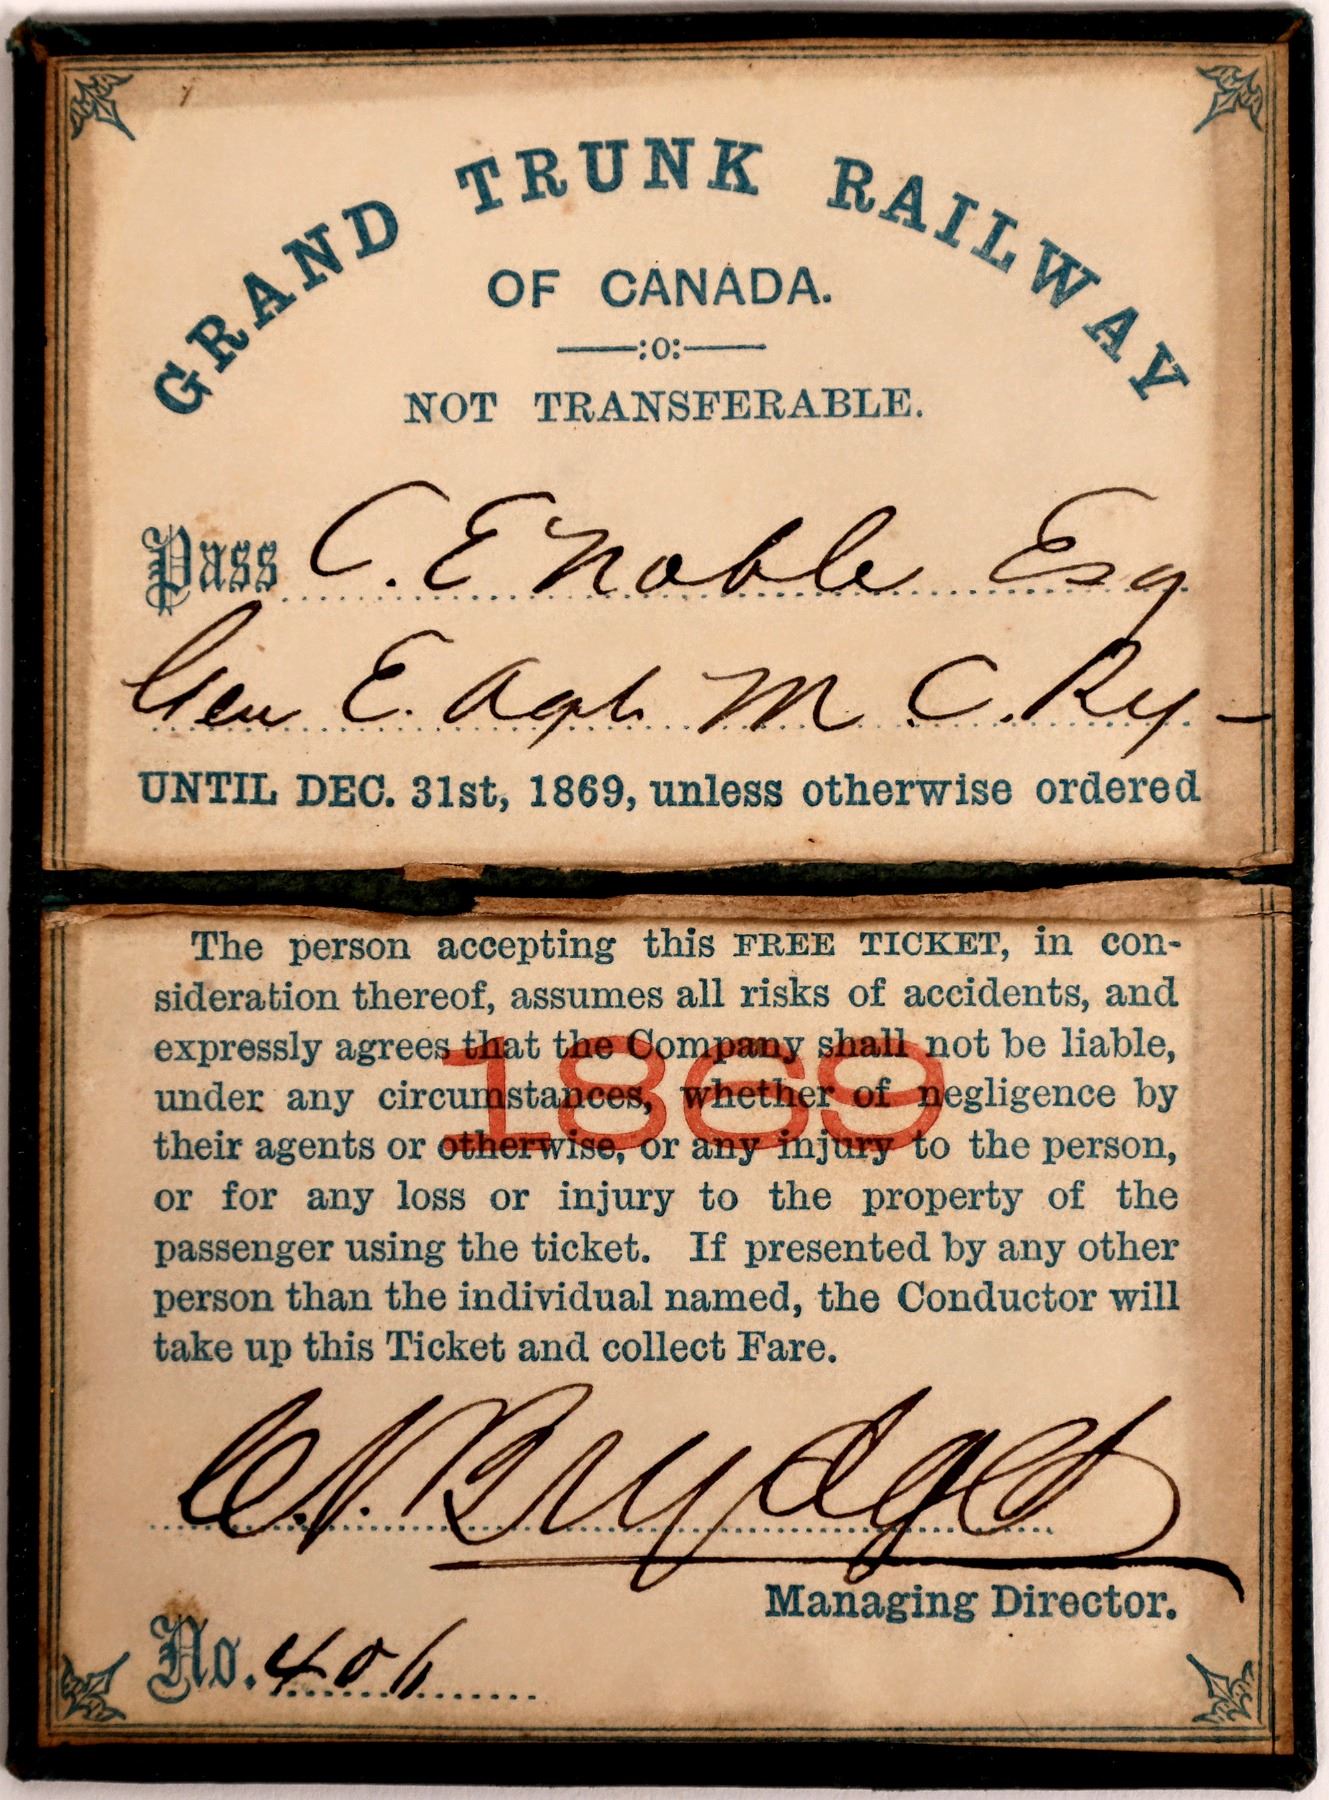 GRAND TRUNK RAILWAY
OF CANADA.
:o:
NOT TRANSFERABLE.
Pass C. E Noble Esq
Gen E. Agt. M. C. Ry-
UNTIL DEC. 31st, 1869, unless otherwise ordered
The person accepting this FREE TICKET, in con-
sideration thereof, assumes all risks of accidents, and
expressly agrees that the Company shall not be liable,
under any circumstances, whether of negligence by
their agents or otherwise, or any injury to the person,
or for any loss or injury to the property of the
passenger using the ticket. If presented by any other
person than the individual named, the Conductor will
take up this Ticket and collect Fare.
1869
C.J. Brydges
Managing Director.
No. 406